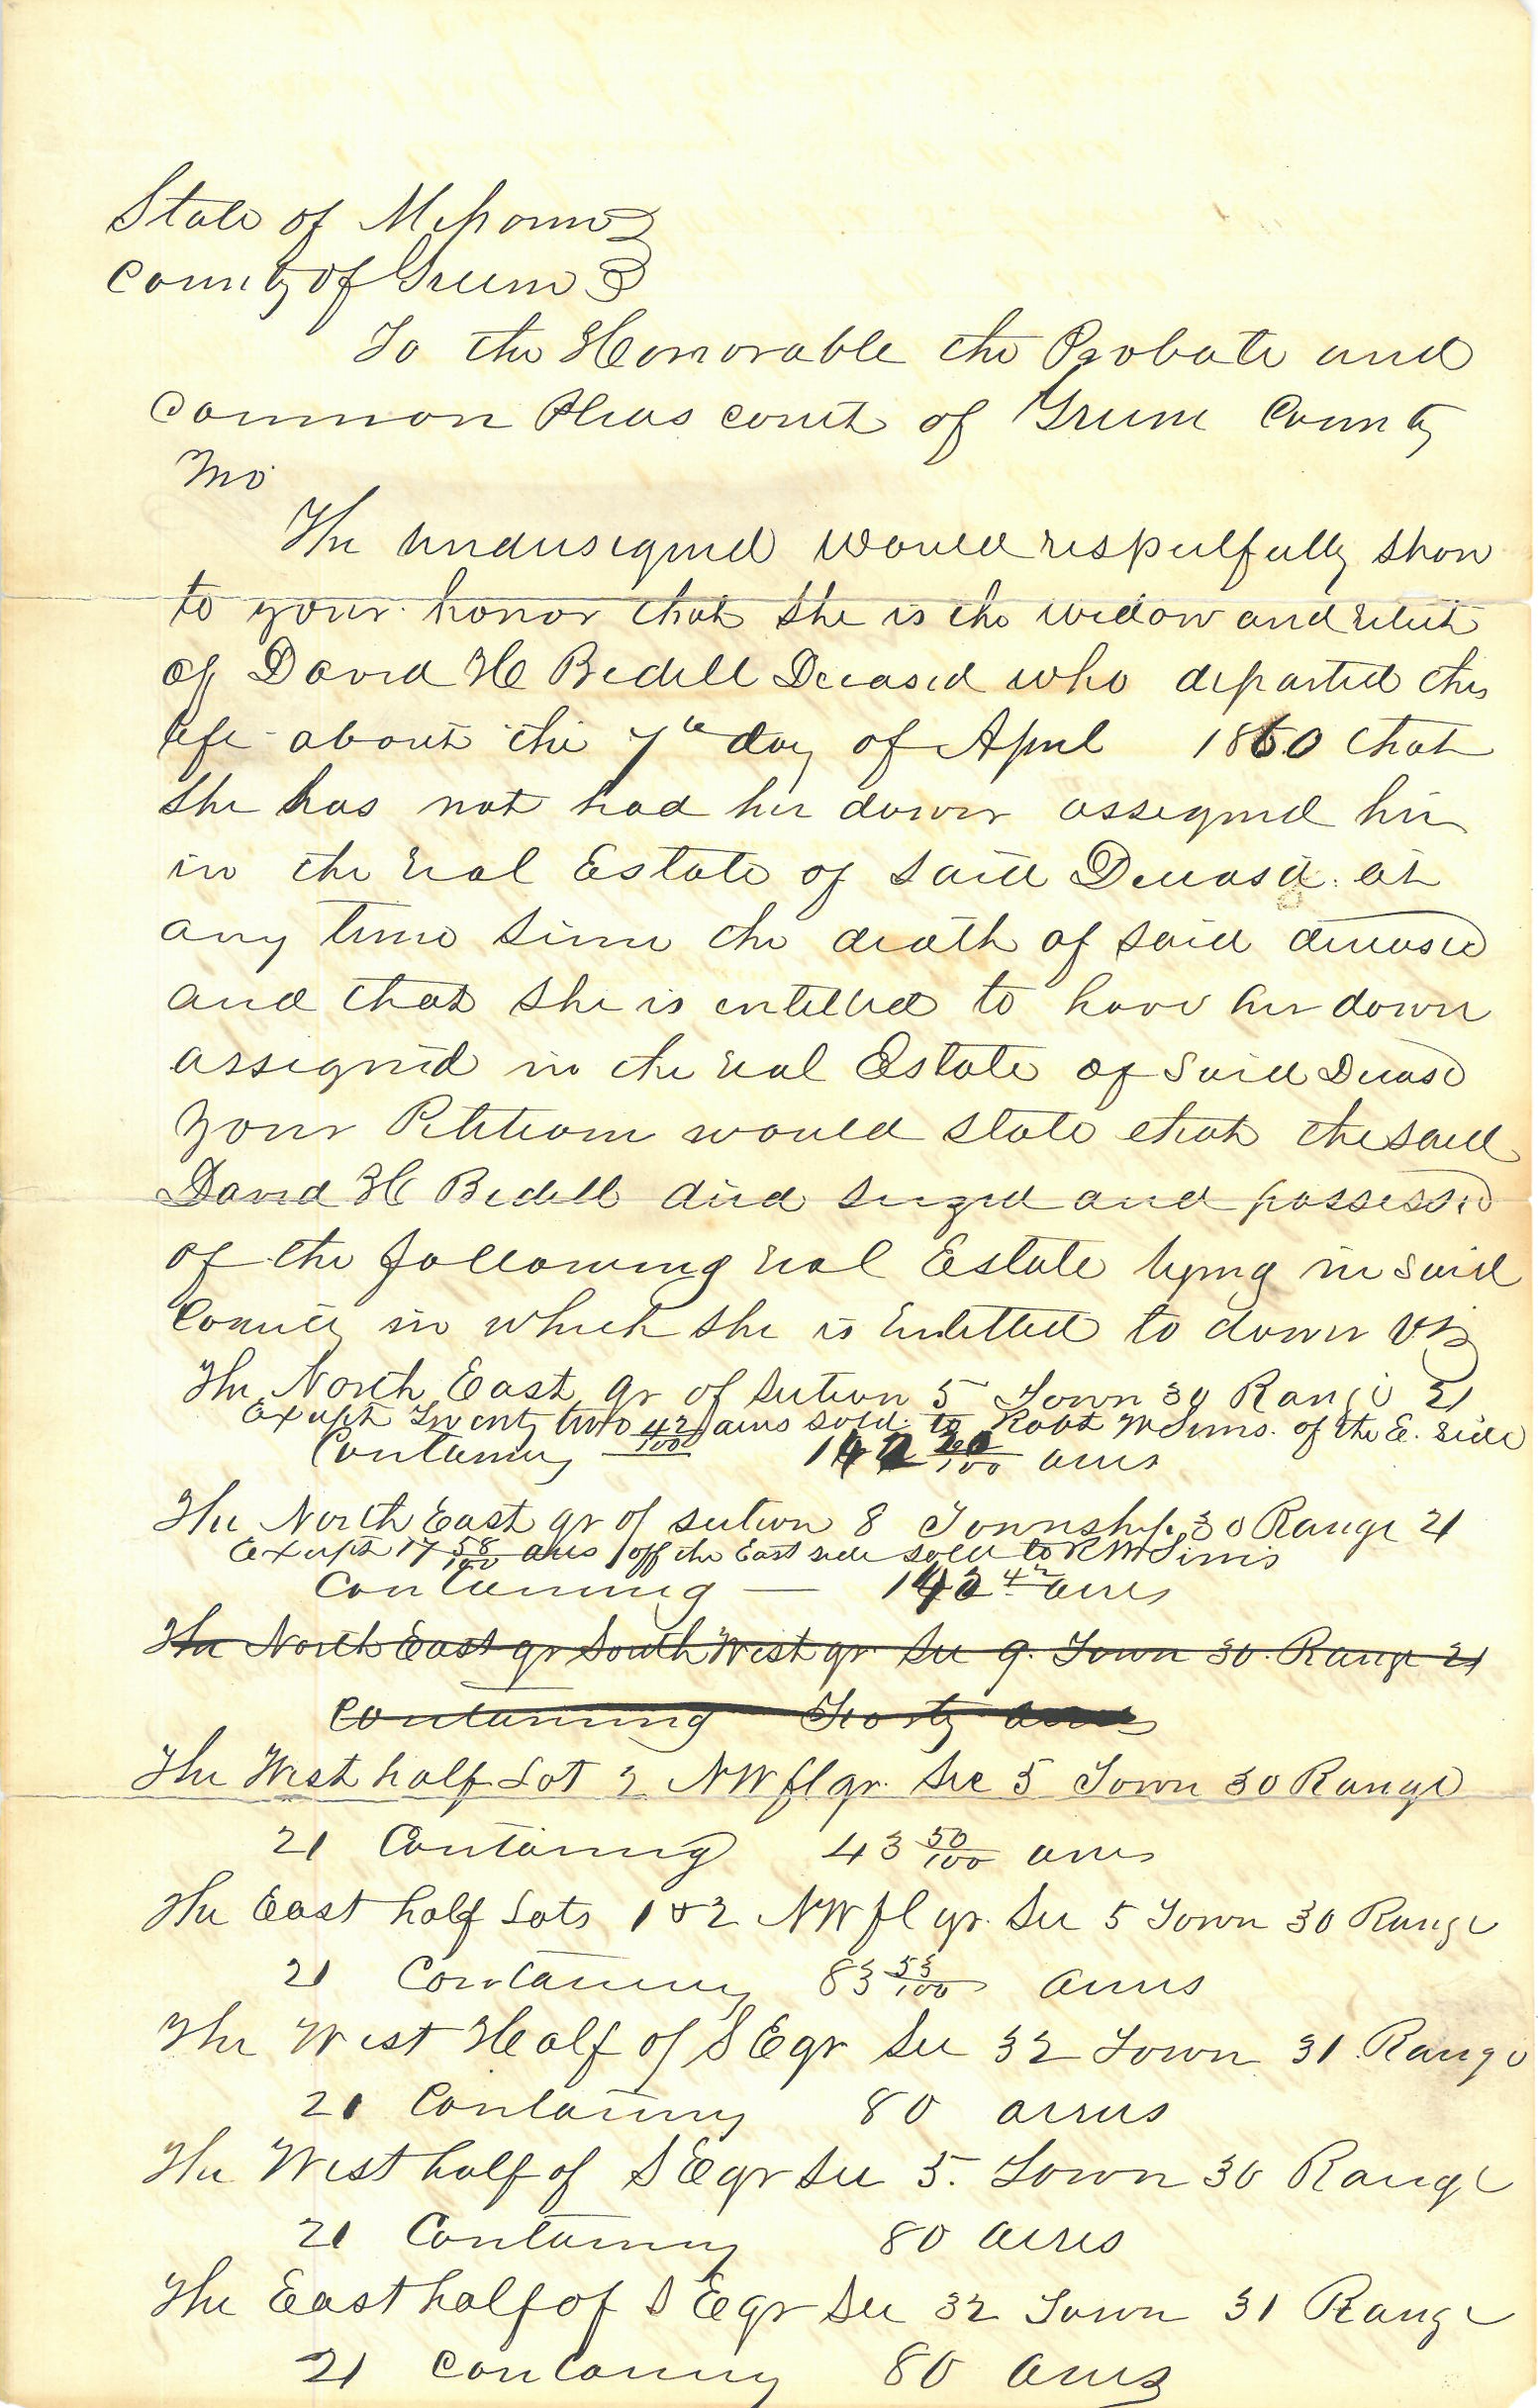 State of Missouri }
County of Greene }
To the Honorable the Probate and
Common Pleas Court of Greene County
Mo
The undersigned would respectfully show
to your honor that she is the widow and relict
of David H Bedell Deceased who departed this
life about the 7th day of April 1860 that
she has not had her dower assigned her
in the real Estate of said Deceasd. at
any time since the death of said deceased
and that she is entitled to have her dower
assigned in the real Estate of said Deceasd
Your Petitioner would state that the said
David H Bedell died seized and possessed
of the following real Estate lying in said
County in which she is Entitled to dower viz
The North East qr of section 5 Town 30 Range 21
Except Twenty two 42/100 acres sold to Robt M Sims. of the E. side
Containing 1 20/100 acres
The North East qr of section 8 Township 30 Range 21
Except 17 58/100 acres off the East side sold to R M Sims
Containing — 142 42 acres
The North East qr South West qr Sec 9. Town 30. Range 21
Containing Forty acres
The West half Lot 2 NW fl qr. Sec 5 Town 30 Range
21 Containing 43 50/100 acres
The East half Lots 1 & 2 NW fl qr. Sec 5 Town 30 Range
21 Containing 83 53/100 acres
The West Half of S E qr Sec 32 Town 31 Range
21 Containing 80 acres
The West half of S E qr Sec 5. Town 30 Range
21 Containing 80 acres
The East half of S E qr Sec 32 Town 31 Range
21 Containing 80 acres